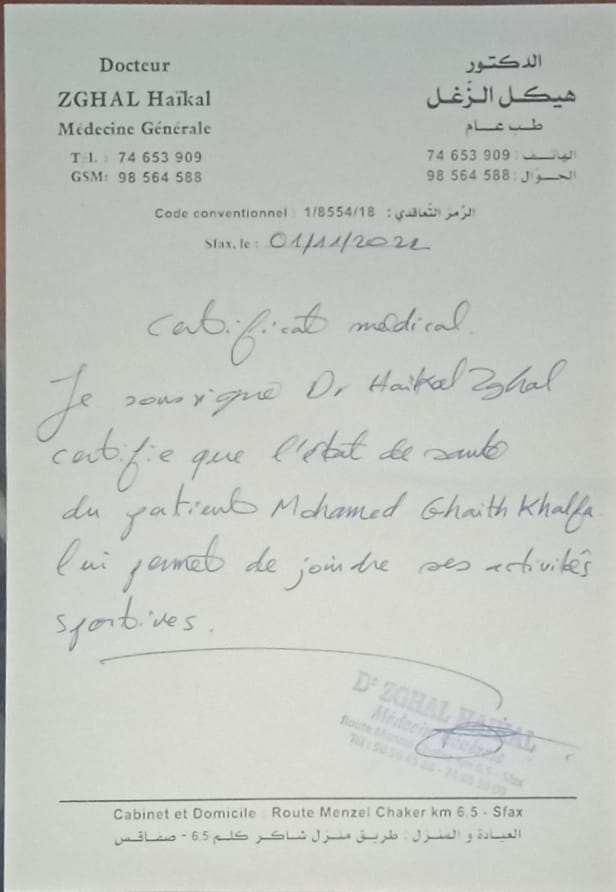 Docteur
ZGHAL Haïkal
Médecine Générale
Tél. : 74 653 909
GSM: 98 564 588
الدكتور
هيكل الزّغل
طب عام
الهاتف : 74 653 909
الجوّال : 98 564 588
Code conventionnel : 1/8554/18 : الرّمز التّعاقدي
Sfax, le : 01/11/2022
Certificat médical.
Je soussigné Dr Haikal Zghal
certifie que l'état de santé
du patient Mohamed Ghaith Khalfa
lui permet de joindre ses activités
sportives.
Dr ZGHAL HAIKAL
Médecine Générale
Route Menzel Chaker km 6,5 - Sfax
Cabinet et Domicile : Route Menzel Chaker km 6,5 - Sfax
العيادة و المنزل : طريق منزل شاكر كلم 6,5 - صفاقس